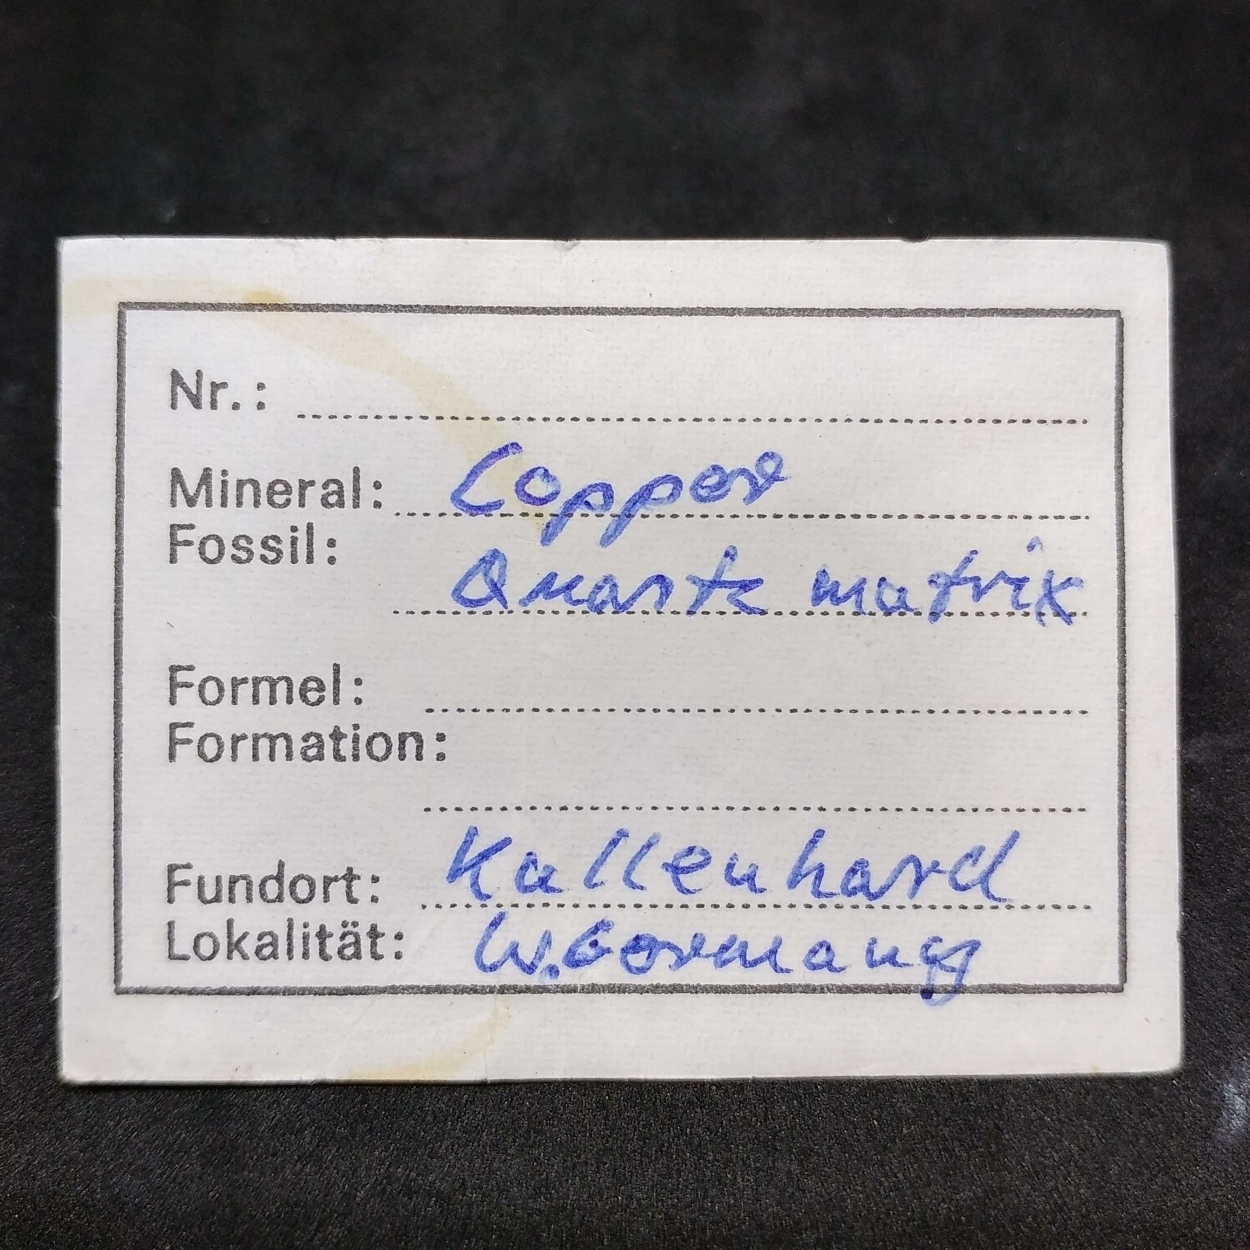 Nr.:
Mineral: Copper
Fossil:
Quartz matrix
Formel:
Formation:
Fundort: Kallenhard
Lokalität: W. Germany